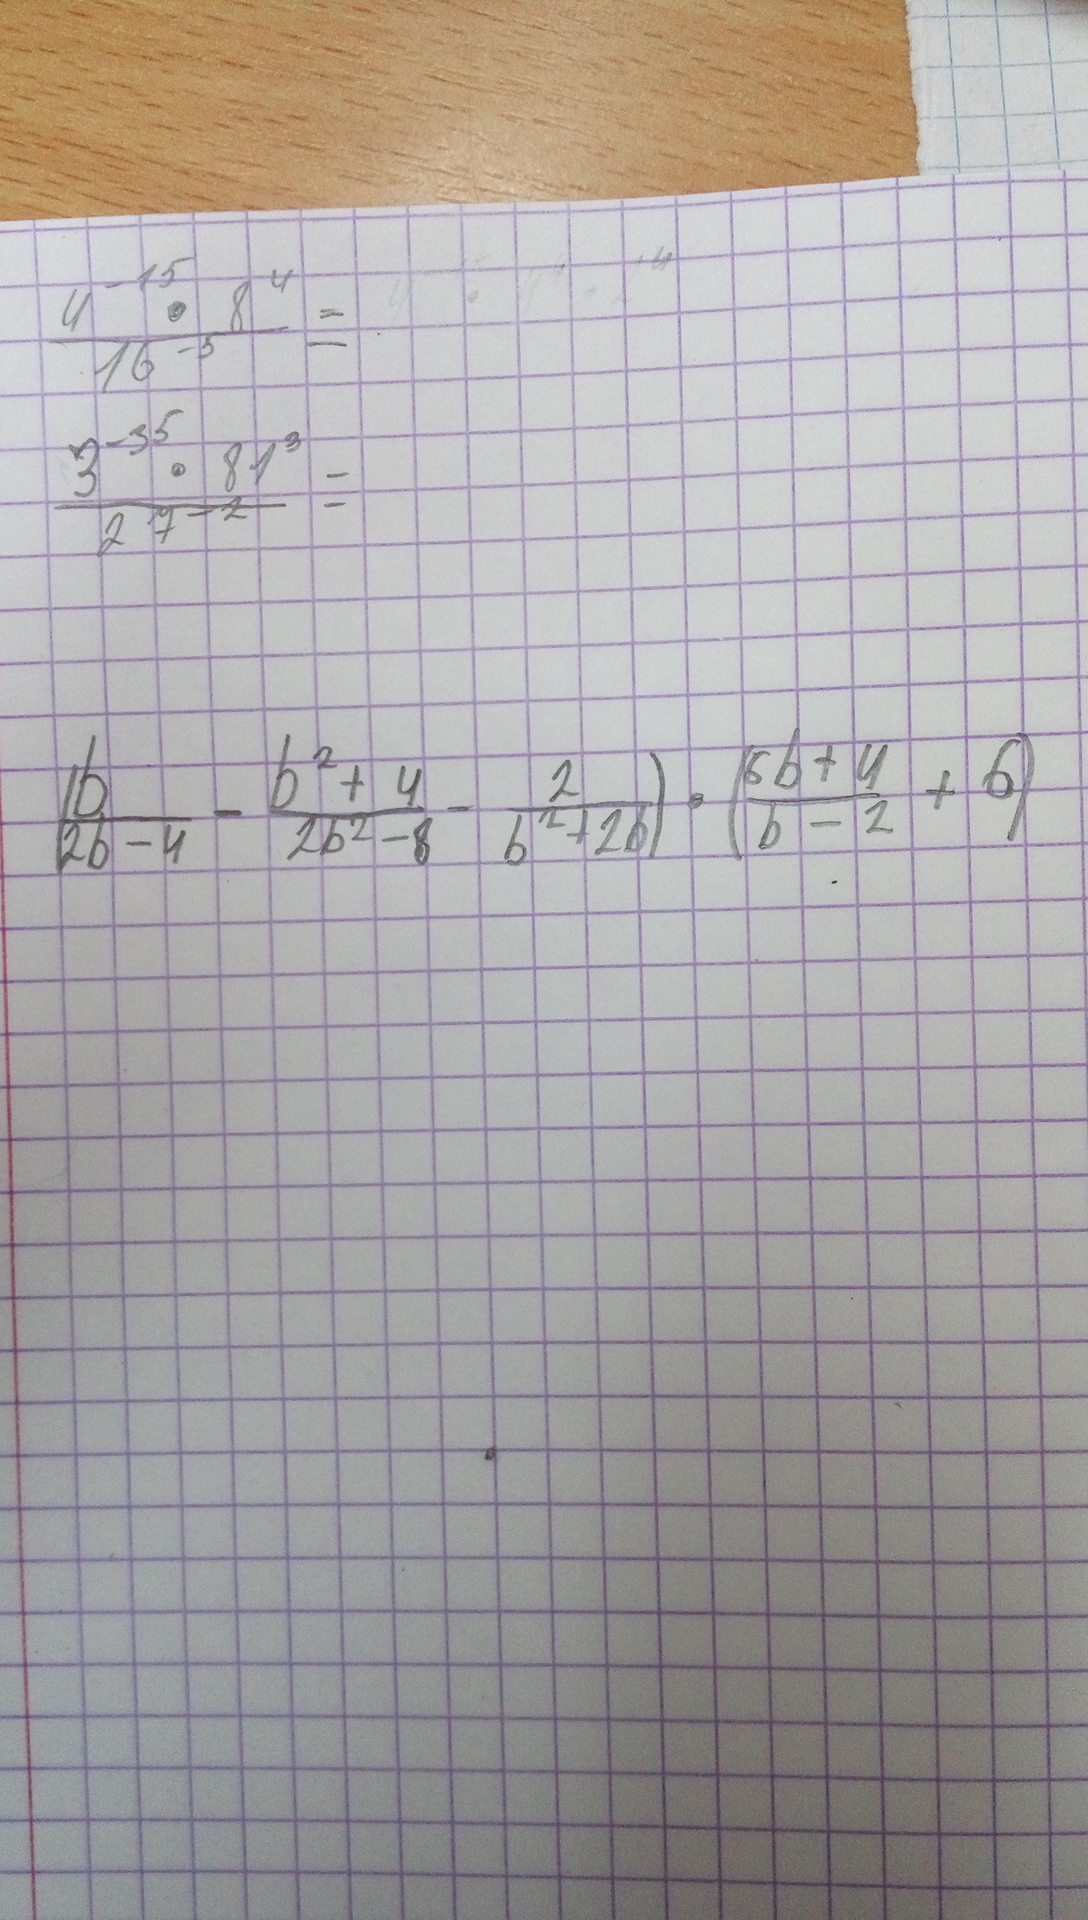 4^-15 • 8^4 / 16^-5 =
3^-35 • 81^3 / 27^-2 =
(b / 2b-4 - b²+4 / 2b²-8 - 2 / b²+2b) • (5b+4 / b-2 + b)